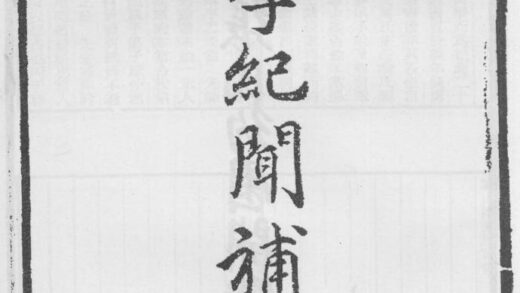 紀聞補